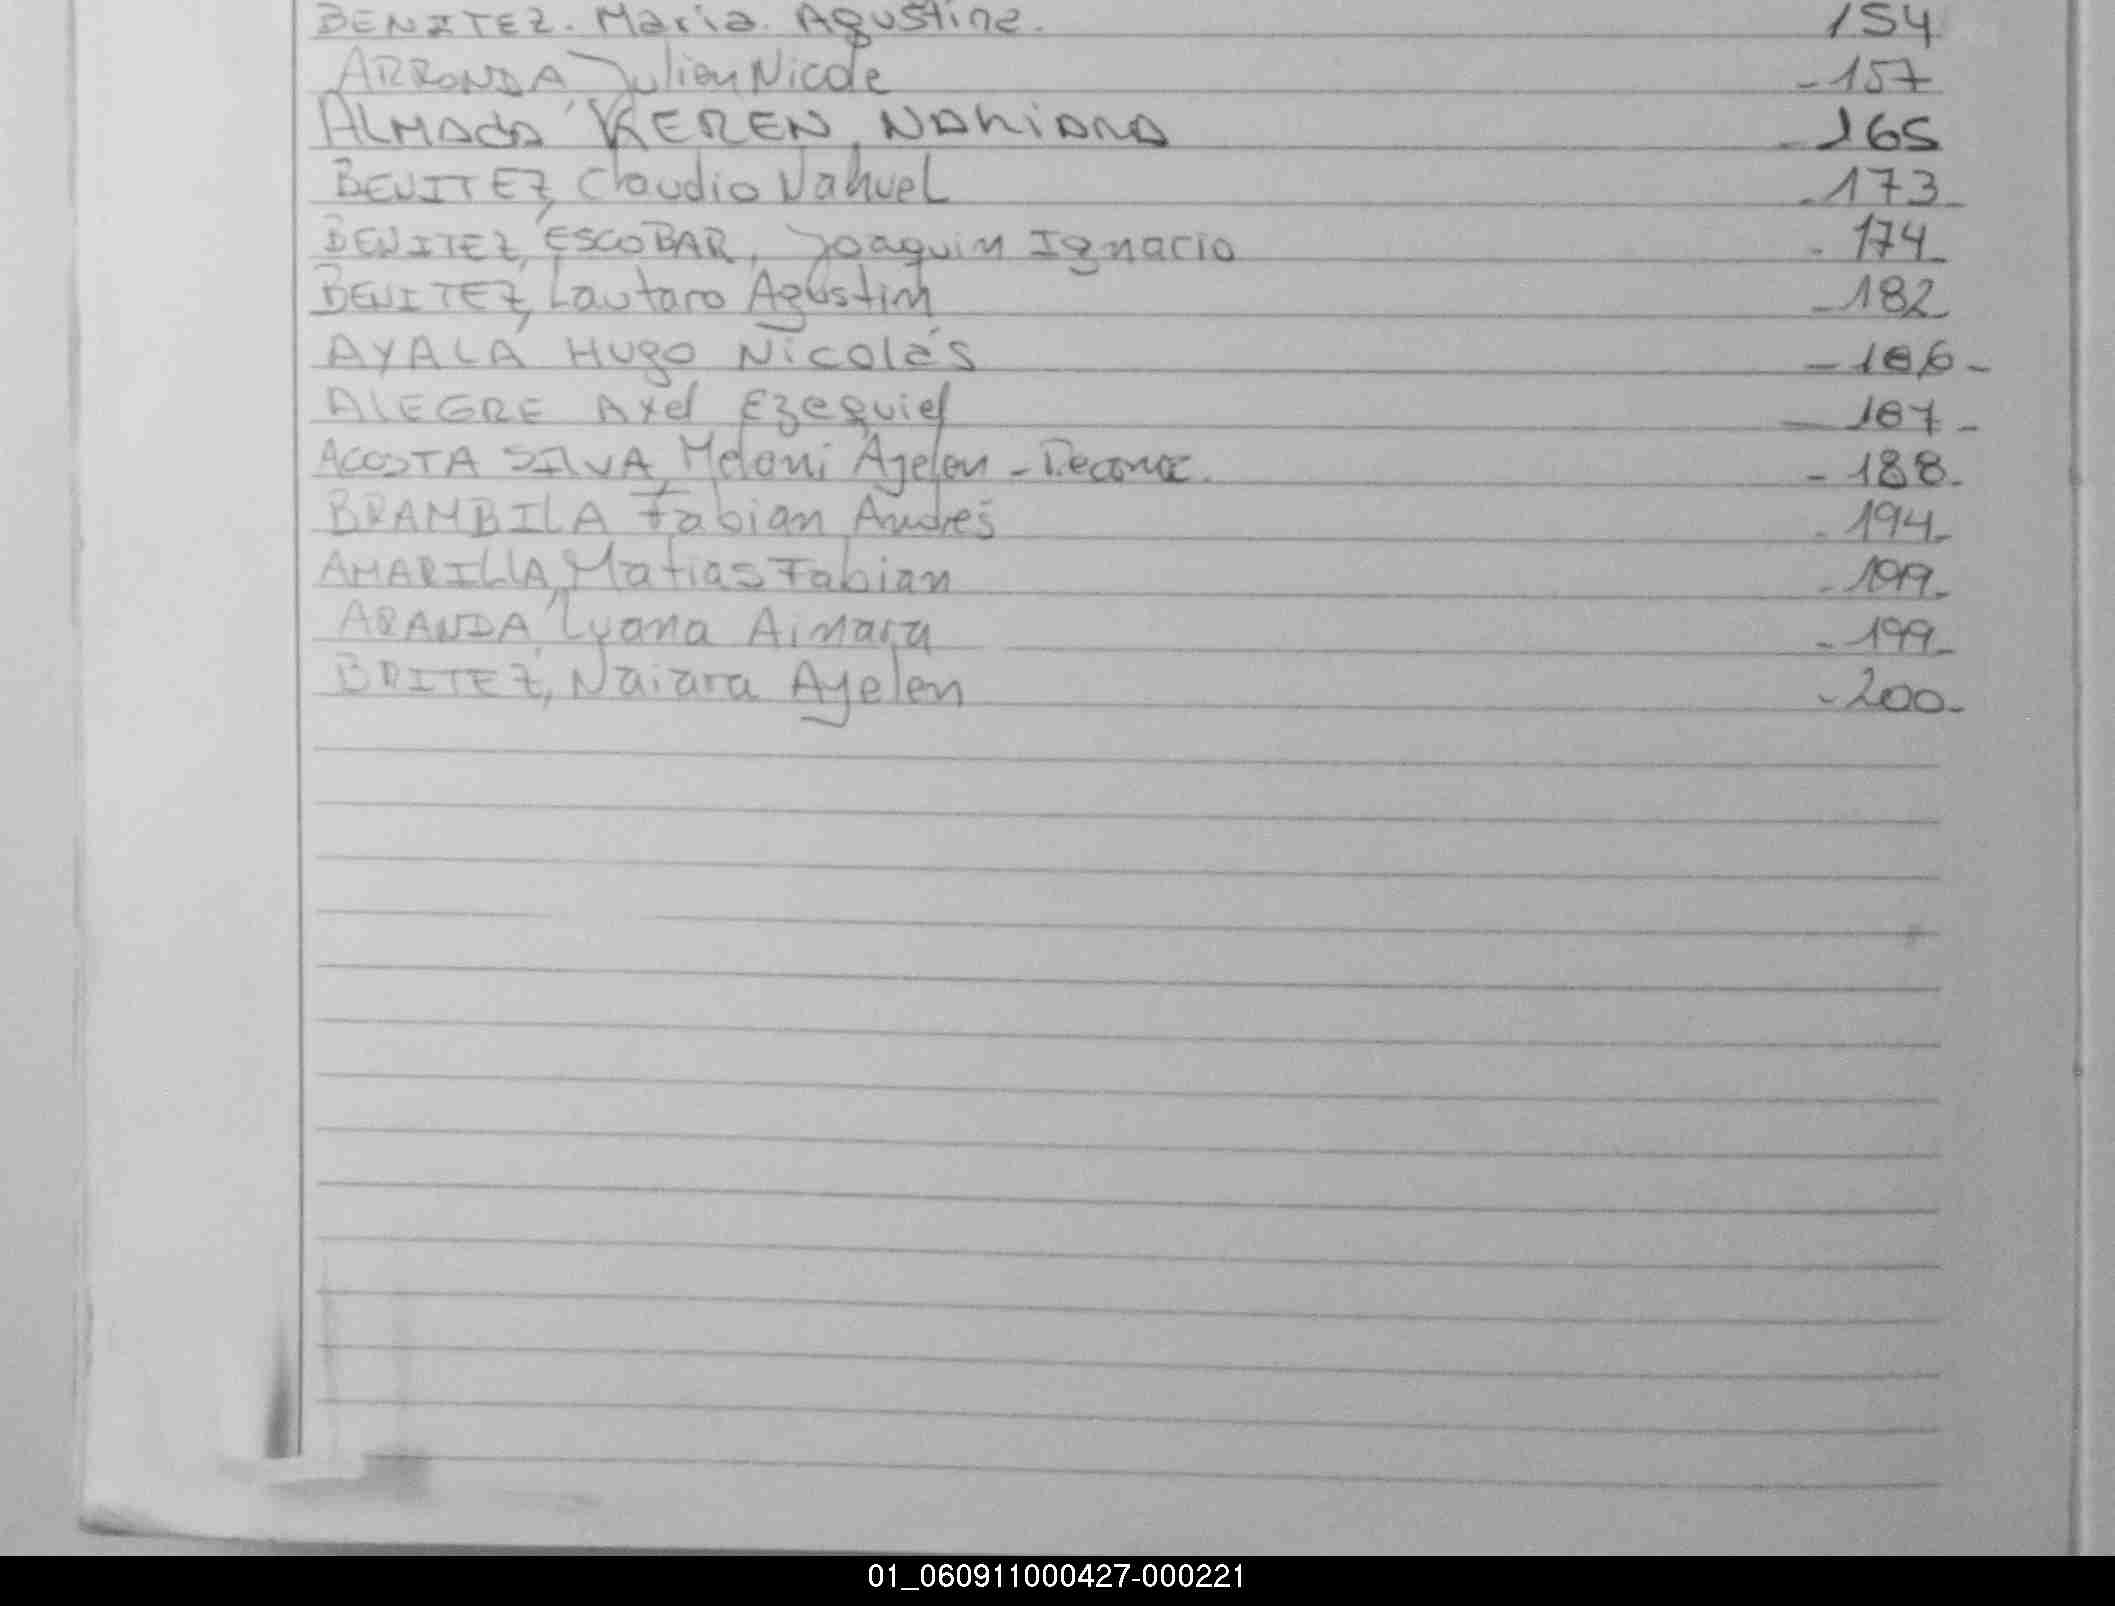 BENITEZ. Maria. Agustina. 154
ARRONDA Julien Nicole - 157
ALMADA, KEREN NAHIARA - 165
BENITEZ, Claudio Nahuel - 173 -
BENITEZ, ESCOBAR, Joaquin Ignacio - 174 -
BENITEZ, Lautaro Agustin - 182
AYALA Hugo Nicolás - 186 -
ALEGRE Axel Ezequiel - 187 -
ACOSTA SILVA, Melani Ayelen - - 188 -
BRAMBILA Fabian Andres - 194 -
AMARILLA, Matias Fabian - 199 -
ARANDA, Lyana Ainara - 199 -
BRITEZ, Naiara Ayelen - 200 -
01_060911000427-000221